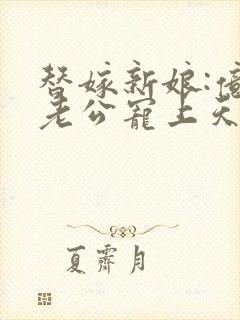 替嫁新娘:億
老公寵上天
夏霽月